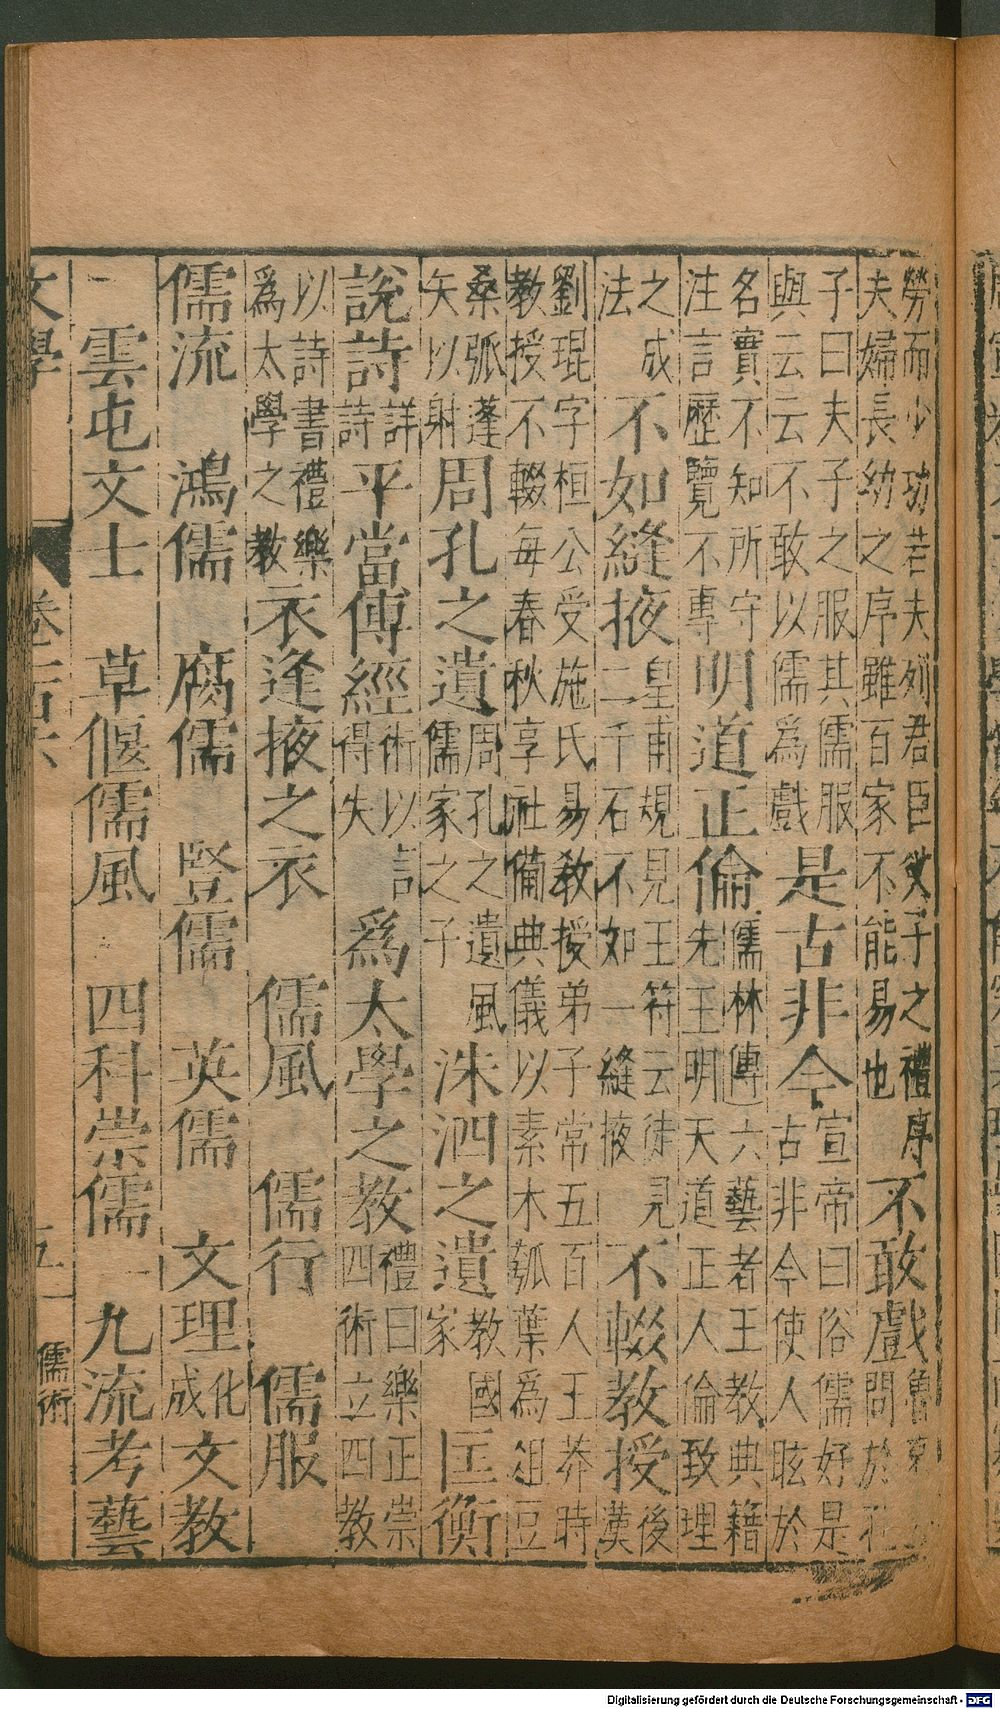 勞而少功若夫列君臣父子之禮序夫婦長幼之序雖百家不能易也不敢戲魯哀問於孔
子曰夫子之服其儒服與云云不敢以儒為戲是古非今宣帝曰俗儒好是古非今使人眩於
名實不知所守注言歷覽不專明道正倫儒林傳六藝者王教典籍先王明天道正人倫致理
之成法不如縫掖皇甫規見王符云徒見二千石不如一縫掖不輟教授後漢
劉琨字桓公受施氏易教授弟子常五百人王莽時教授不輟每春秋享社備典儀以素木瓠葉為俎豆
桑弧蓬矢以射周孔之遺周孔之遺風儒家之子洙泗之遺教國家匡衡
說詩詳詩平當傳經術以得失為太學之教禮曰樂正崇四術立四教
以詩書禮樂為太學之教衣逢掖之衣 儒風 儒行 儒服
儒流 鴻儒 腐儒 豎儒 英儒 文理化成文教
雲屯文士 草偃儒風 四科崇儒 九流考藝
文學 卷 五 儒術
Digitalisierung gefördert durch die Deutsche Forschungsgemeinschaft - DFG